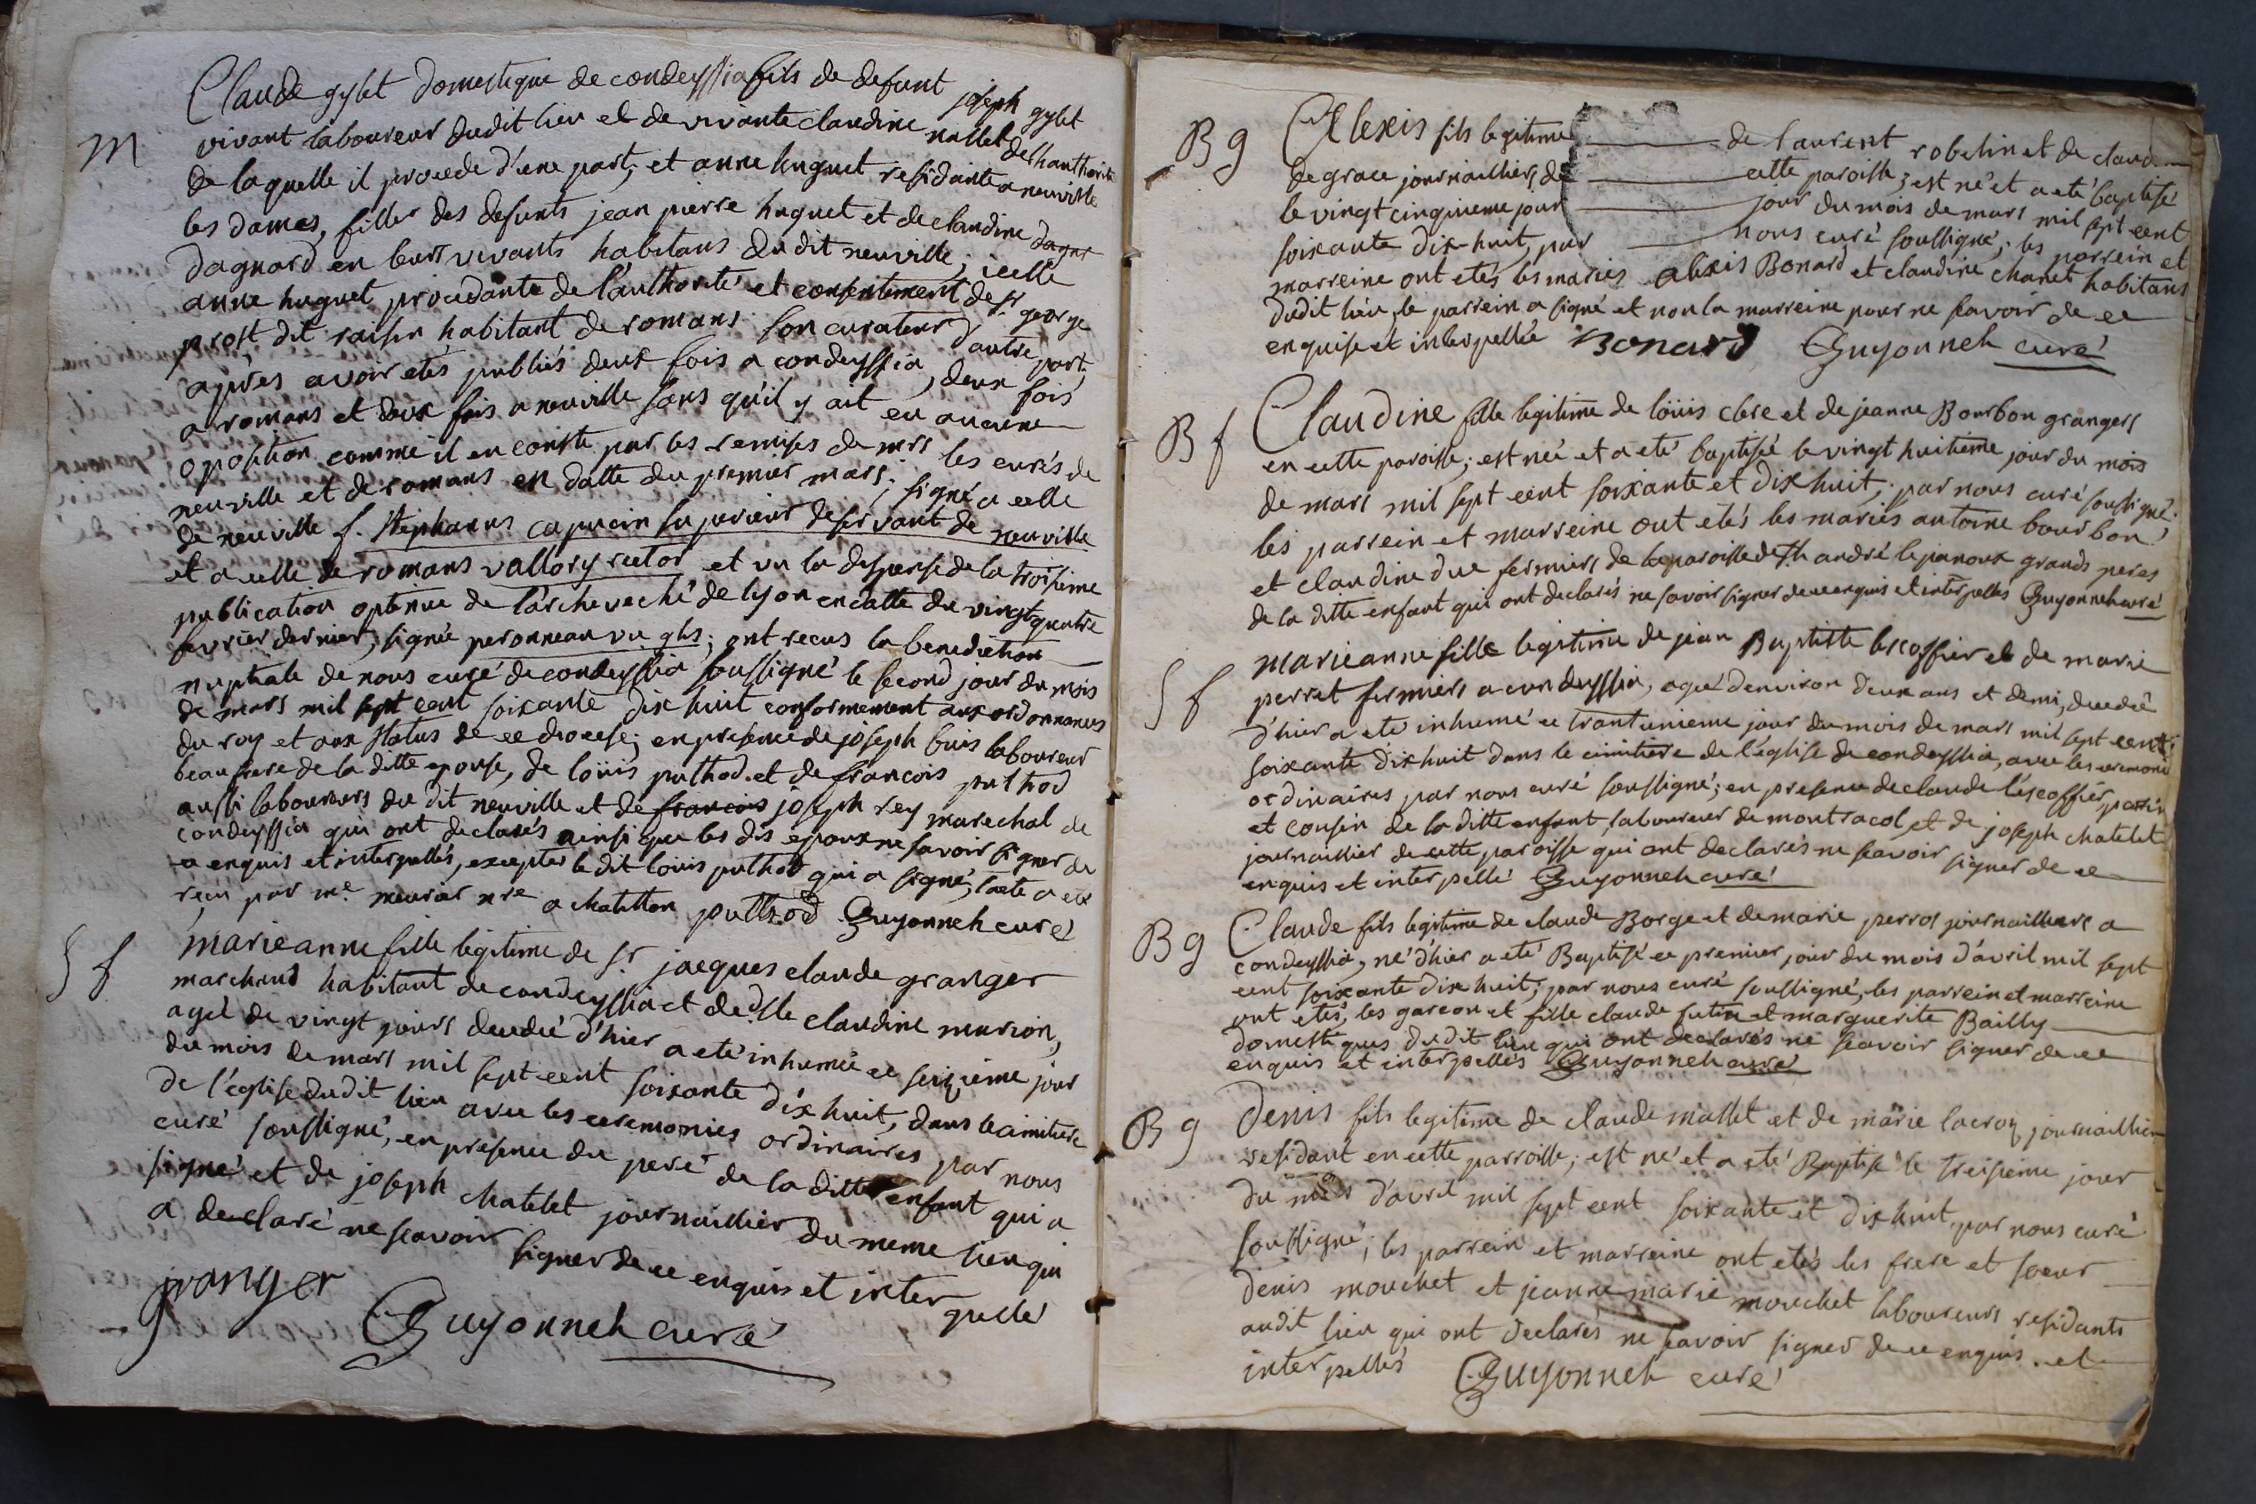 Claude gylet domestique de condeyssia fils de defunt joseph gylet
m
vivant laboureur dudit lieu et de vivante claudine mallet de l'hauthorité
de laquelle il procede d'une part, et anne huguet residante a neuville
les dames, fille des defunts jean pierre huguet et de claudine
dagnard en leurs vivants habitans du dit neuville, icelle
anne huguet procedante de l'authorité et consentiment de sr. george
prost dit raisin habitant de romans son curateur d'autre part
apres avoir etés publiés deux fois a condeyssia, deux fois
a romans et deux fois a neuville sans qu'il y ait eu aucune
oposition comme il en conste par les remises de mrs les curés de
neuville et de romans en datte du premier mars; signé a celle
de neuville f. stephanus capucin superieur deservant de neuville
et a celle de romans vallory rector et vu la dispense de la troisieme
publication optenue de l'archeveché de lyon en datte du vingtquatre
fevrier dernier, signée peronneau vic gls; ont recus la benediction
nuptiale de nous curé de condeyssia soussigné le second jour du mois
de mars mil sept cent soixante dix huit conformement aux ordonnances
du roy et aux status de ce diocese; en presence de joseph buis laboureur
beaufrere de la ditte epouse, de loüis puthod et de francois puthod
aussi laboureurs du dit neuville et de francois joseph rey marechal de
condeyssia qui ont declarés ainsi que les dis epoux ne savoir signer de
ce enquis et interpellés, excepter le dit louis puthod qui a signé, l'acte a eté
reçu par me. meurier nre a chatillon puthod Guyonneh curé
S f
marieanne fille legitime de sr. jacques claude granger
marchand habitant de condeyssia et de dlle claudine marion,
agée de vingt jours decedée d'hier a eté inhumée ce seizieme jour
du mois de mars mil sept cent soixante dix huit, dans le cimitiere
de l'eglise dudit lieu avec les ceremonies ordinaires par nous
curé soussigné, en presence du pere de la ditte enfant qui a
signé et de joseph chatelet journaillier du meme lieu qui
a declaré ne scavoir signer de ce enquis et inter
pellé
granger
Guyonneh curé
B g
Alexis fils legitime de laurent robelin et de claudine
de grace journailliers de cette paroisse; est né et a eté baptisé
le vingt cinquieme jour jour du mois de mars mil sept cent
soixante dix-huit, par nous curé soussigné; les parrein et
marreine ont etés les mariés alexis Bonard et claudine chanet habitans
dudit lieu, le parrein a signé et non la marreine pour ne scavoir de ce
enquise et interpellée Bonard Guyonneh curé
B f
Claudine fille legitime de loüis clere et de jeanne Bourbon grangers
en cette paroisse; est née et a eté baptisée le vingt huitieme jour du mois
de mars mil sept cent soixante et dix huit; par nous curé soussigné.
les parrein et marreine ont etés les mariés antoine bourbon
et claudine due fermiers de la paroisse de st. andré le panoux grands peres
de la ditte enfant qui ont declarés ne savoir signer de ce enquis et interpellés Guyonneh curé
S f
marieanne fille legitime de jean Baptiste lescoffier et de marie
perret fermiers a condeyssia, agée d'environ deux ans et demi, decedée
d'hier a eté inhumé ce trant unieme jour du mois de mars mil sept cent
soixante dix huit dans le cimitiere de l'église de condeyssia, avec les ceremonies
ordinaires par nous curé soussigné; en presence de claude l'escoffier parrin
et cousin de la ditte enfant, laboureur de montracol et de joseph chatelet
journaillier de cette paroisse qui ont declarés ne scavoir signer de ce
enquis et interpellé Guyonneh curé
B g
Claude fils legitime de claude Borge et de marie perret journailliers a
condeyssia, né d'hier a eté Baptisé ce premier jour du mois d'avril mil sept
cent soixante dix huit; par nous curé soussigné, les parrein et marreine
ont etés, les garcon et fille claude futin et marguerite Bailly
domestiques dudit lieu qui ont declarés ne scavoir signer de ce
enquis et interpellés Guyonneh curé
B g
Denis fils legitime de claude mallet et de marie lacroy journailliers
residant en cette parroisse; est né et a eté Baptisé le treisieme jour
du mois d'avril mil sept cent soixante et dix huit, par nous curé
soussigné; les parrein et marreine ont etés les frere et soeur
denis mouchet et jeanne marie mouchet laboureurs residants
audit lieu qui ont declarés ne scavoir signer de ce enquis et
interpellés Guyonneh curé